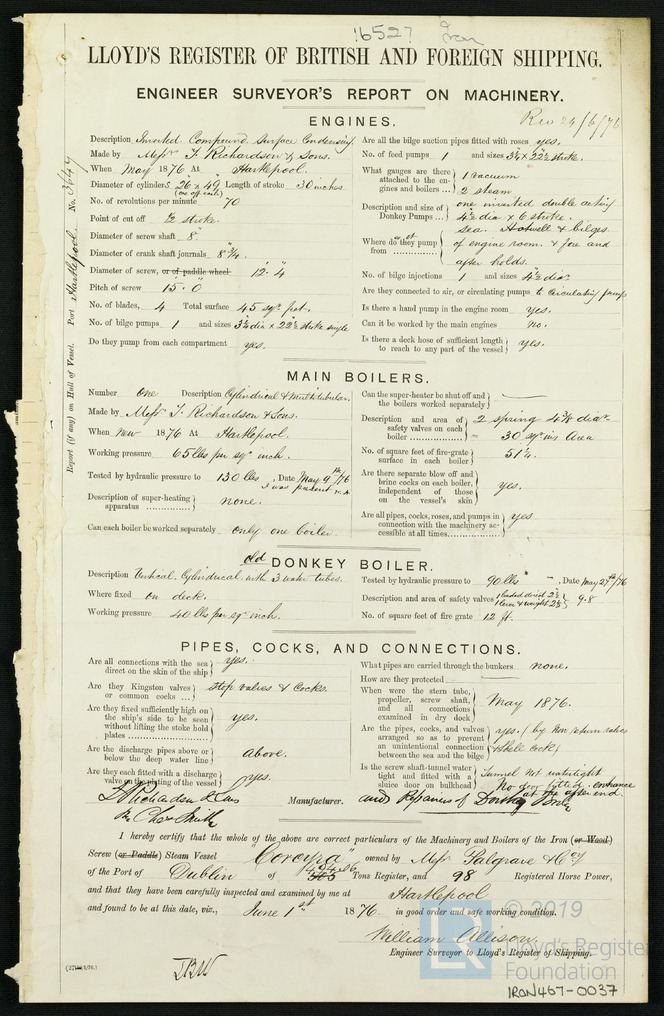 16527 Iron
LLOYD'S REGISTER OF BRITISH AND FOREIGN SHIPPING.
ENGINEER SURVEYOR'S REPORT ON MACHINERY.
Rec 24/6/76
ENGINES.
Description Inverted Compound Surface Condensing
Made by Messrs T. Richardson & Sons.
When May 1876 At Hartlepool.
Diameter of cylinders 26 x 49 Length of stroke 30 inches.
(one of each)
No. of revolutions per minute 70
Point of cut off 1/2 stroke.
Diameter of screw shaft 8"
Diameter of crank shaft journals 8 3/4"
Diameter of screw, or of paddle wheel 12' 4"
Pitch of screw 15' 0"
No. of blades, 4 Total surface 45 sqr feet.
No. of bilge pumps 1 and sizes 3 1/4 dia x 22 1/2 stroke single
Do they pump from each compartment yes.
Are all the bilge suction pipes fitted with roses yes.
No. of feed pumps 1 and sizes 3 1/4 x 22 1/2 stroke.
What gauges there are attached to the engines and boilers ... 1 vacuum 2 steam
Description and size of Donkey Pumps ... one inverted double acting 4 1/2 dia x 6 stroke.
Where do they pump from sea. Hotwell & bilges of engine room. & fore and after holds.
No. of bilge injections 1 and sizes 4 1/2 dia.
Are they connected to air, or circulating pumps to circulating pump
Is there a hand pump in the engine room yes.
Can it be worked by the main engines no.
Is there a deck hose of sufficient length to reach to any part of the vessel yes.
Report (if any) on Hull of Vessel. Port Hartlepool No. 3647
MAIN BOILERS.
Number One Description Cylindrical & Multitubular.
Made by Messrs T. Richardson & Sons.
When New 1876 At Hartlepool.
Working pressure 65 lbs per sqr inch.
Tested by hydraulic pressure to 130 lbs, Date May 9th/76
I was present
Description of super-heating apparatus none.
Can each boiler be worked separately only one boiler
Can the super-heater be shut off and the boilers worked separately —
Description and area of safety valves on each boiler 2 spring 4 3/8 diar = 30 sqr ins Area
No. of square feet of fire-grate surface in each boiler 51 1/4.
Are there separate blow off and brine cocks on each boiler, independent of those on the vessel's skin yes.
Are all pipes, cocks, roses, and pumps in connection with the machinery accessible at all times yes
old DONKEY BOILER.
Description Vertical. Cylindrical with 3 water tubes.
Where fixed on deck.
Working pressure 40 lbs per sqr inch.
Tested by hydraulic pressure to 90 lbs, Date May 27th/76
Description and area of safety valves 1 loaded direct 2 1/2 1 lever & weight 2 1/2 9.8
No. of square feet of fire grate 12 ft.
PIPES, COCKS, AND CONNECTIONS.
Are all connections with the sea direct on the skin of the ship yes.
Are they Kingston valves or common cocks ... stop valves & Cocks.
Are they fixed sufficiently high on the ship's side to be seen without lifting the stoke hold plates yes.
Are the discharge pipes above or below the deep water line above.
Are they each fitted with a discharge valve on the plating of the vessel yes.
What pipes are carried through the bunkers none.
How are they protected —
When were the stern tube, propeller, screw shaft, and all connections examined in dry dock May 1876.
Are the pipes, cocks, and valves arranged so as to prevent an unintentional connection between the sea and the bilge yes. (by Non return valves & shell cocks)
Is the screw shaft-tunnel water tight and fitted with a sluice door on bulkhead Tunnel not watertight No door fitted, entrance at the after end.
T Richardson & Sons
Manufacturer. and Repairers of Donkey Boiler
per Chas Smith
I hereby certify that the whole of the above are correct particulars of the Machinery and Boilers of the Iron (or Wood)
Screw (or Paddle) Steam Vessel "Corcyra" owned by Messrs Palgrave & Coy
of the Port of Dublin of Tons Register, and 98 Registered Horse Power,
and that they have been carefully inspected and examined by me at Hartlepool
and found to be at this date, viz., June 1st 1876, in good order and safe working condition.
William Allison
Engineer Surveyor to Lloyd's Register of Shipping.
© 2019
LR Lloyd's Register
Foundation
IRON467-0037